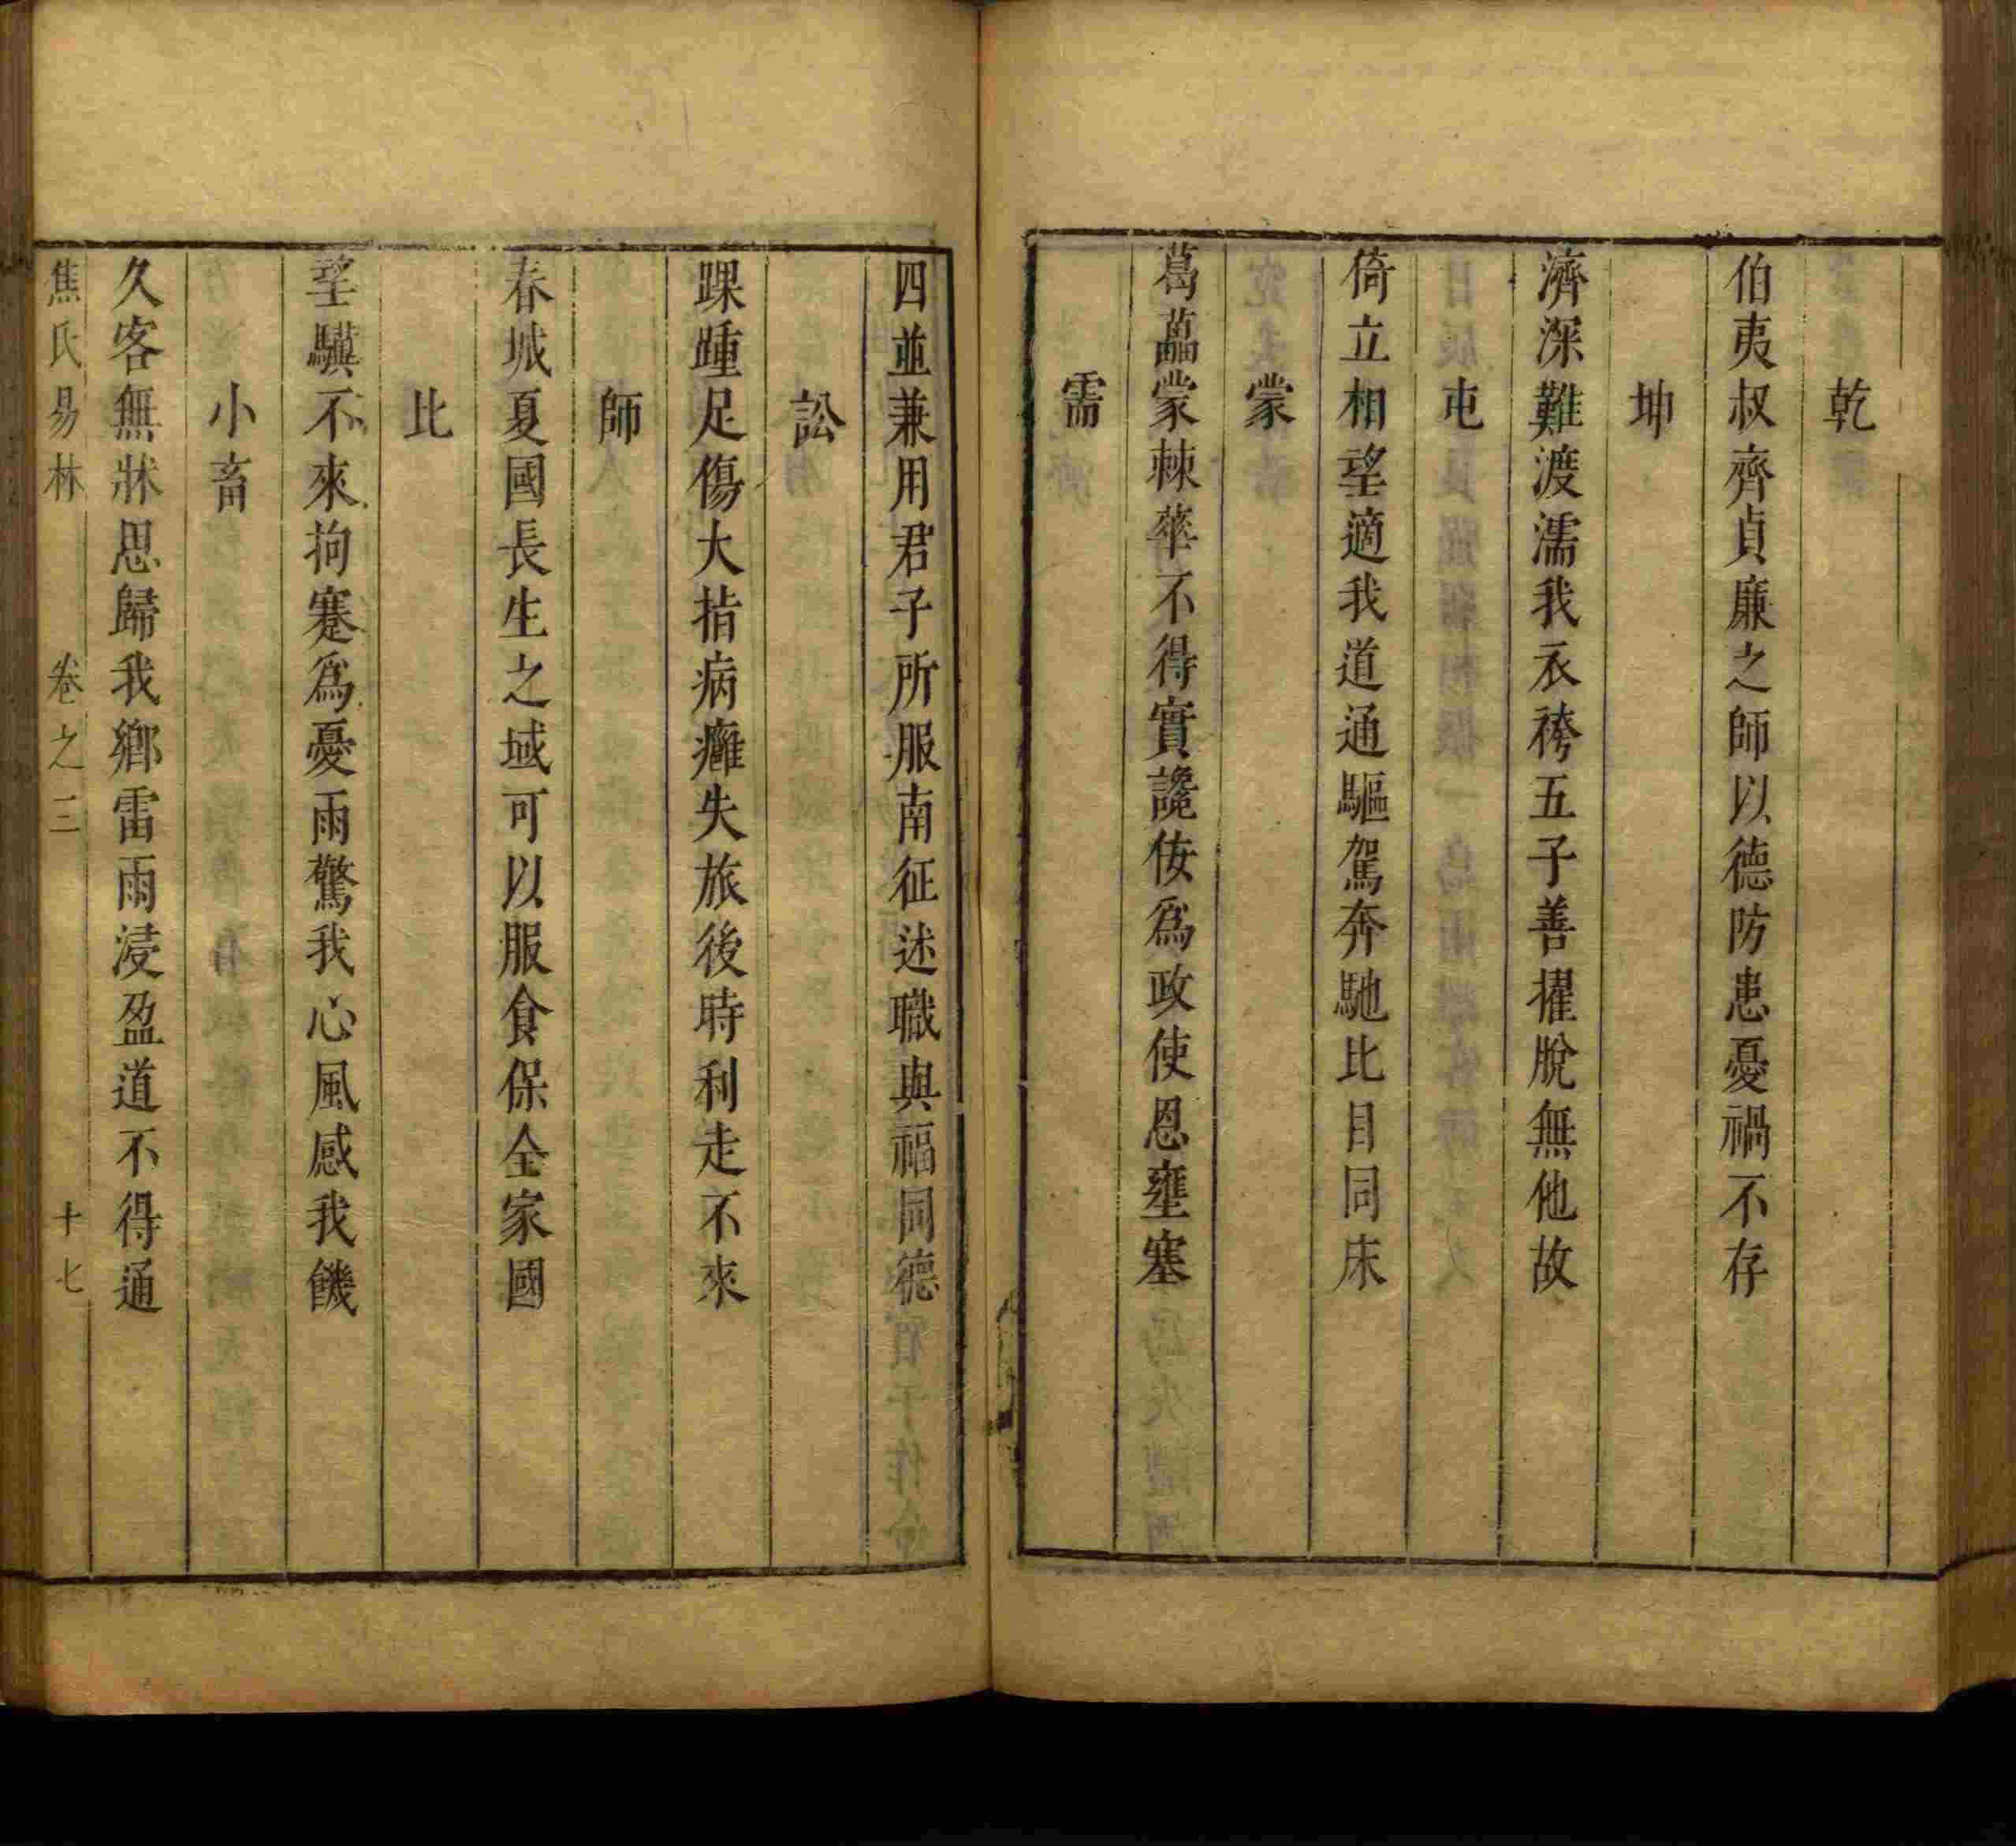 乾
伯夷叔齊貞廉之師以德防患憂禍不存
坤
濟深難渡濡我衣袴五子善擢脫無他故
屯
倚立相望適我道通驅駕奔馳比目同床
蒙
葛藟蒙棘華不得實讒佞為政使恩壅塞
需
四並兼用君子所服南征述職與福同德
訟
踝踵足傷大指病癰失旅後時利走不來
師
春城夏國長生之域可以服食保全家國
比
望驥不來拘蹇為憂雨驚我心風感我饑
小畜
久客無牀思歸我鄉雷雨浸盈道不得通
焦氏易林 卷之三 十七